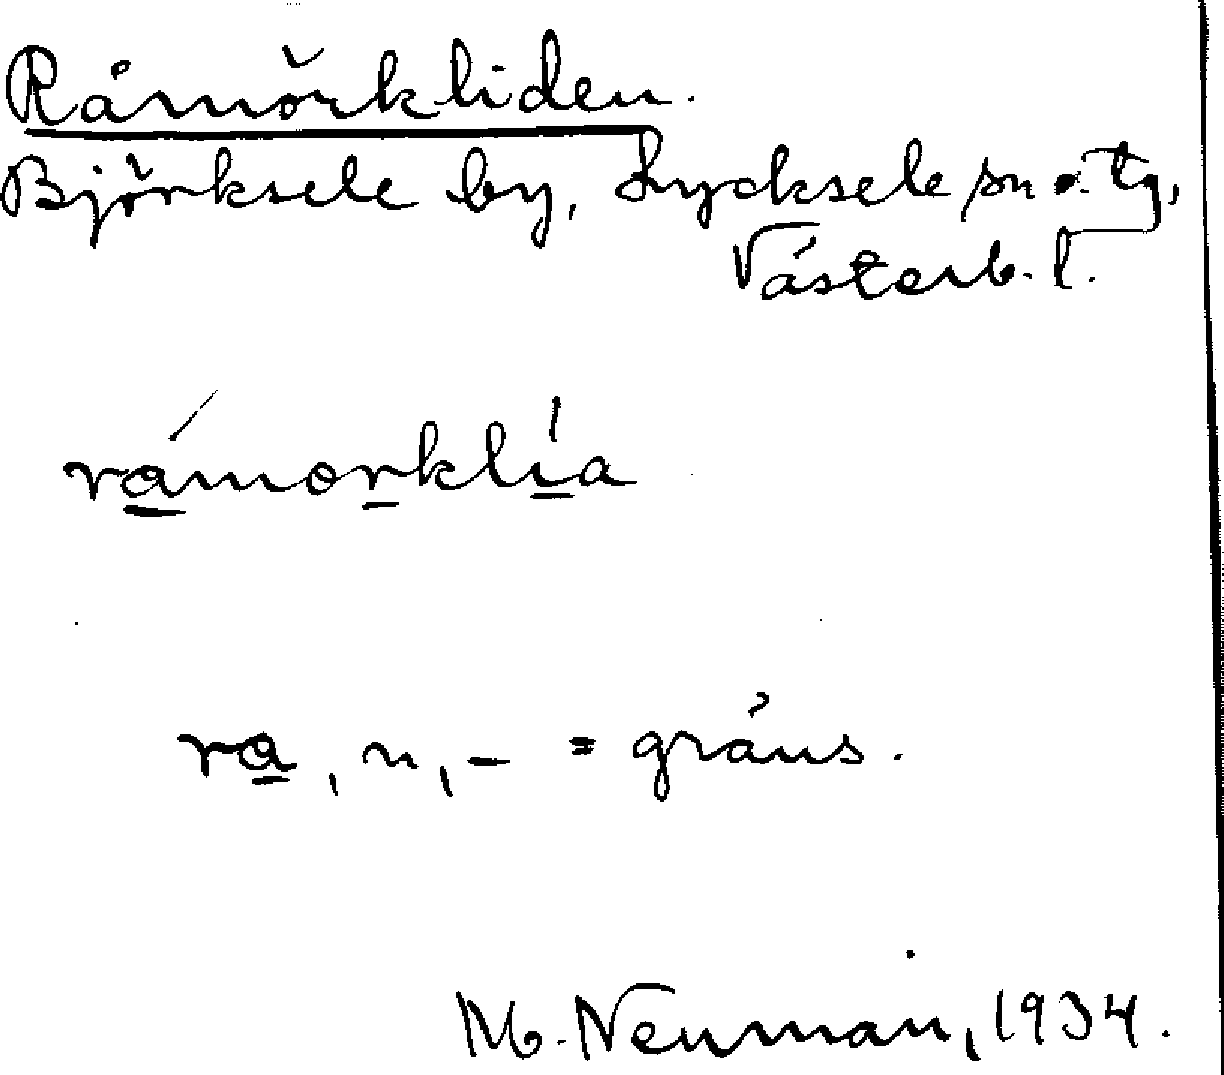 Råmörkliden.
Björksele by, Lycksele sn o. tg,
Västerb. l.
råmorklia
ra, n, - = gräns.
M. Neuman, 1934.